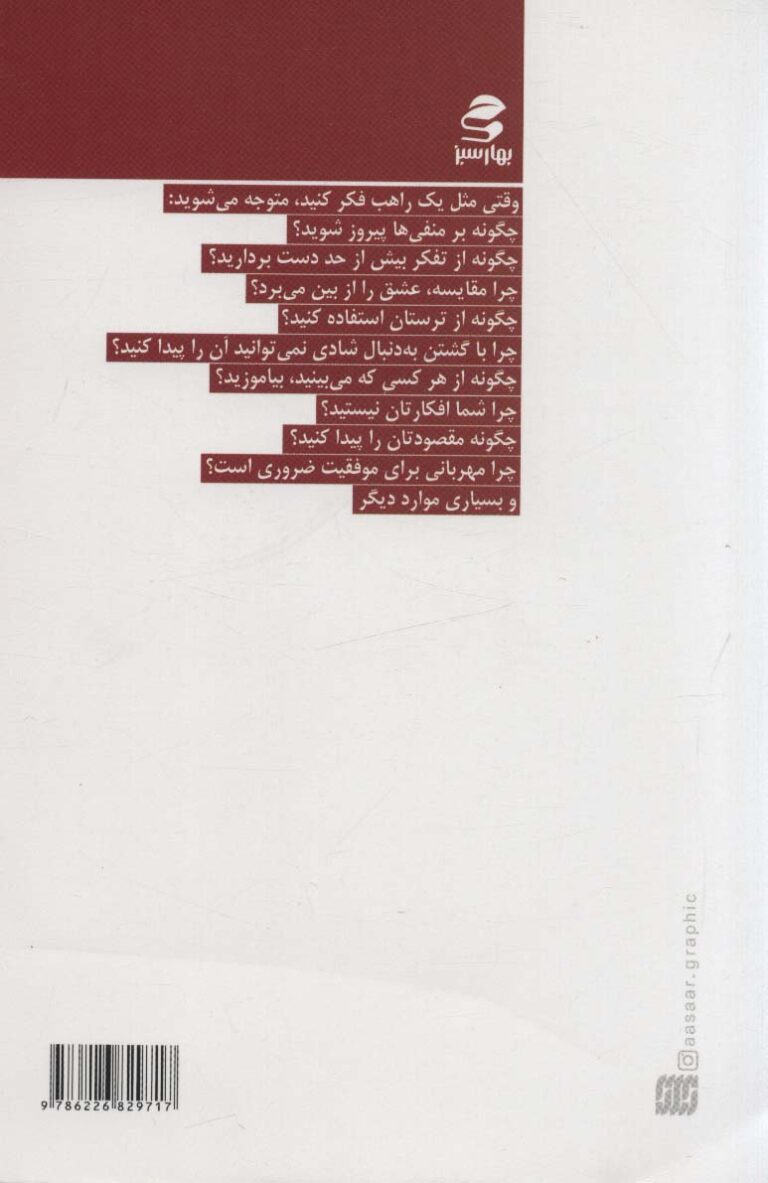 بهارسبز
وقتی مثل یک راهب فکر کنید، متوجه می‌شوید:
چگونه بر منفی‌ها پیروز شوید؟
چگونه از تفکر بیش از حد دست بردارید؟
چرا مقایسه، عشق را از بین می‌برد؟
چگونه از ترستان استفاده کنید؟
چرا با گشتن به‌دنبال شادی نمی‌توانید آن را پیدا کنید؟
چگونه از هر کسی که می‌بینید، بیاموزید؟
چرا شما افکارتان نیستید؟
چگونه مقصودتان را پیدا کنید؟
چرا مهربانی برای موفقیت ضروری است؟
و بسیاری موارد دیگر
aasaar.graphic
9 786226 829717